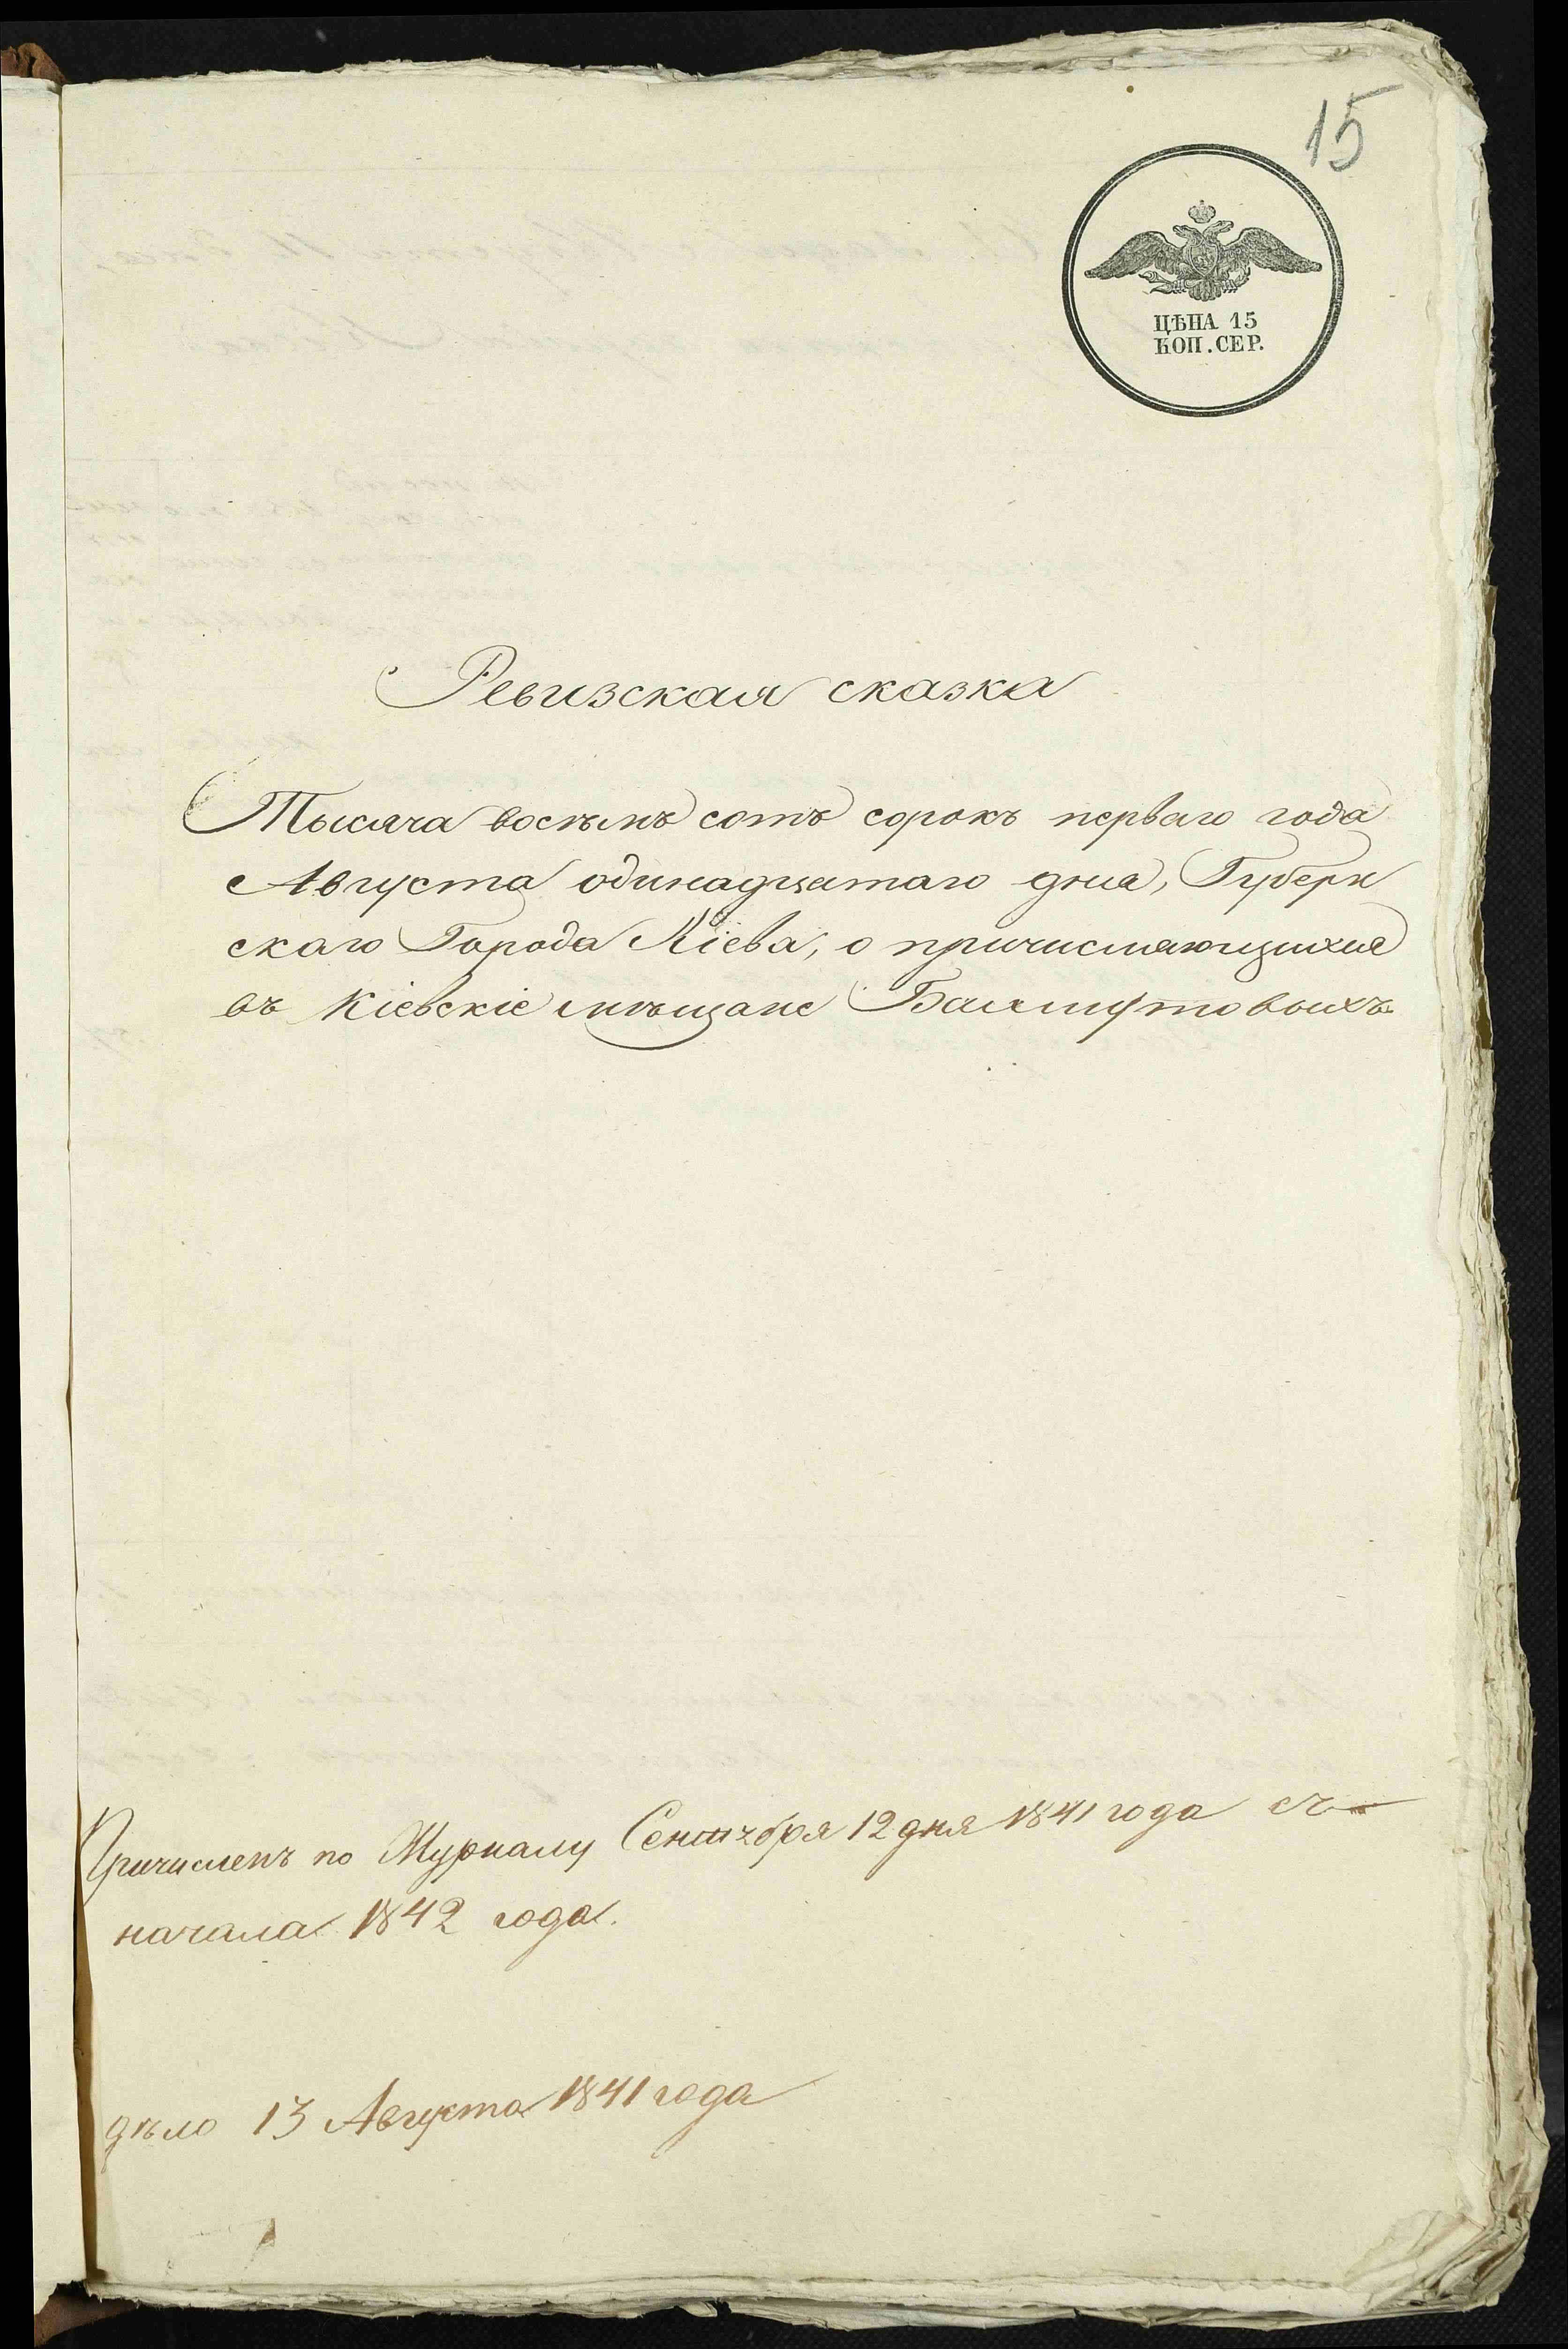 15
ЦѢНА 15
КОП. СЕР.
Ревизская сказка
Тысяча восѣмъ сотъ сорокъ перваго года
Августа одинадцатаго дня, Губерн
скаго Города Кіева, о причисляющихся
въ Кіевскіе мѣщане
Причисленъ по Журналу Сентября 12 дня 1841 года съ
начала 1842 года.
дѣло 13 Августа 1841 года